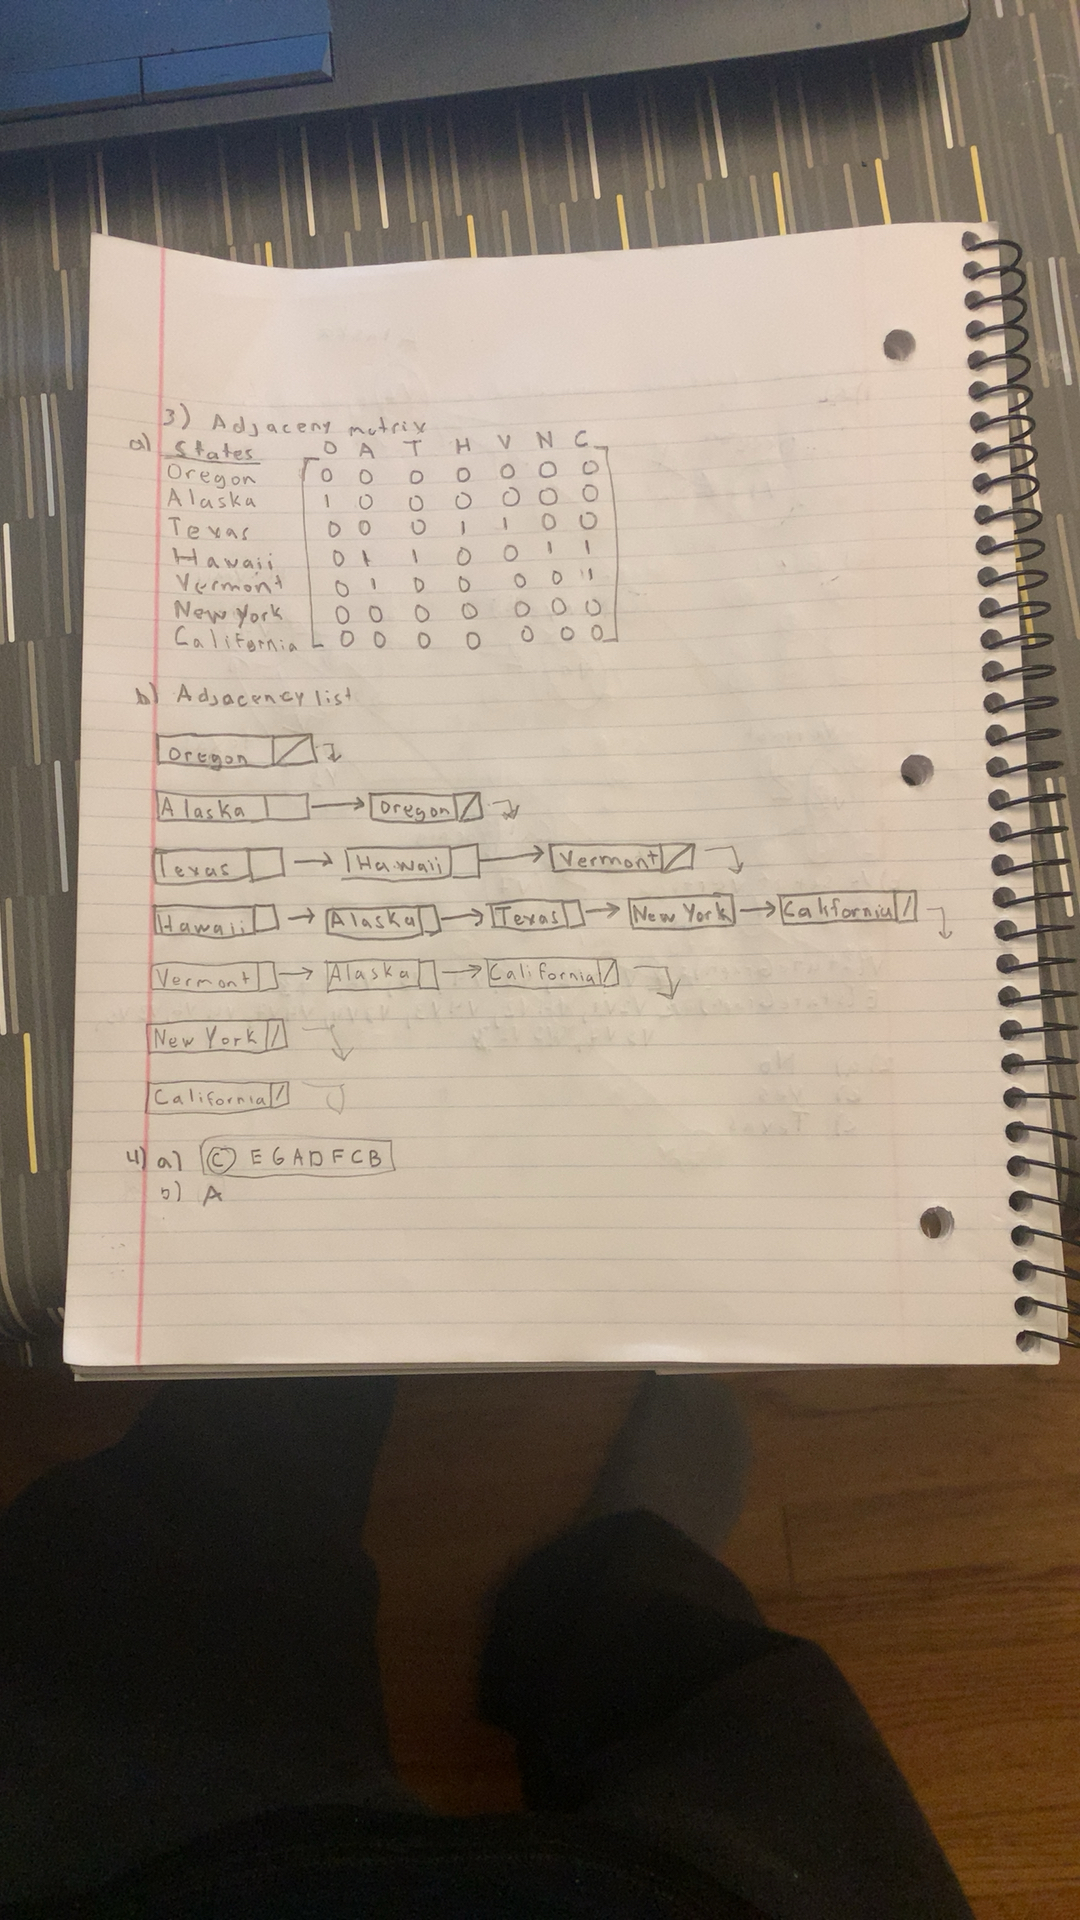 3) Adjaceny matrix
a) States O A T H V N C
Oregon 0 0 0 0 0 0 0
Alaska 1 0 0 0 0 0 0
Texas 0 0 0 1 1 0 0
Hawaii 0 1 1 0 0 1 1
Vermont 0 1 0 0 0 0 1
New York 0 0 0 0 0 0 0
California 0 0 0 0 0 0 0
b) Adjacency list
Oregon
Alaska → Oregon
Texas → Hawaii → Vermont
Hawaii → Alaska → Texas → New York → California
Vermont → Alaska → California
New York
California
4) a) C) E G A D F C B
b) A